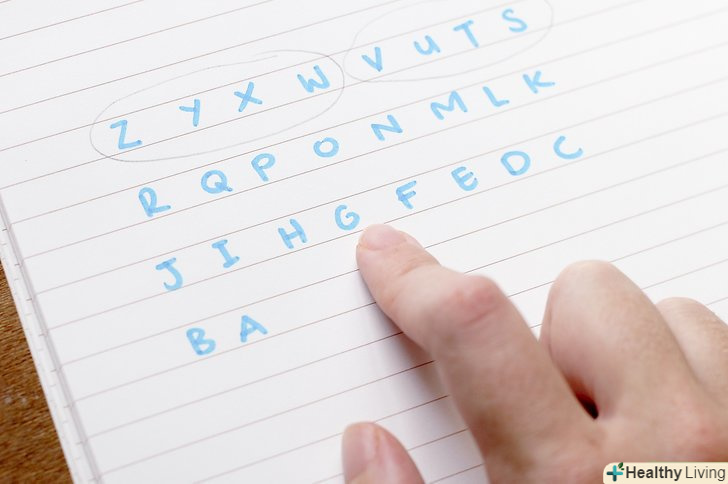 Z Y X W V U T S
R Q P O N M L K
J I H G F E D C
B A
Healthy Living